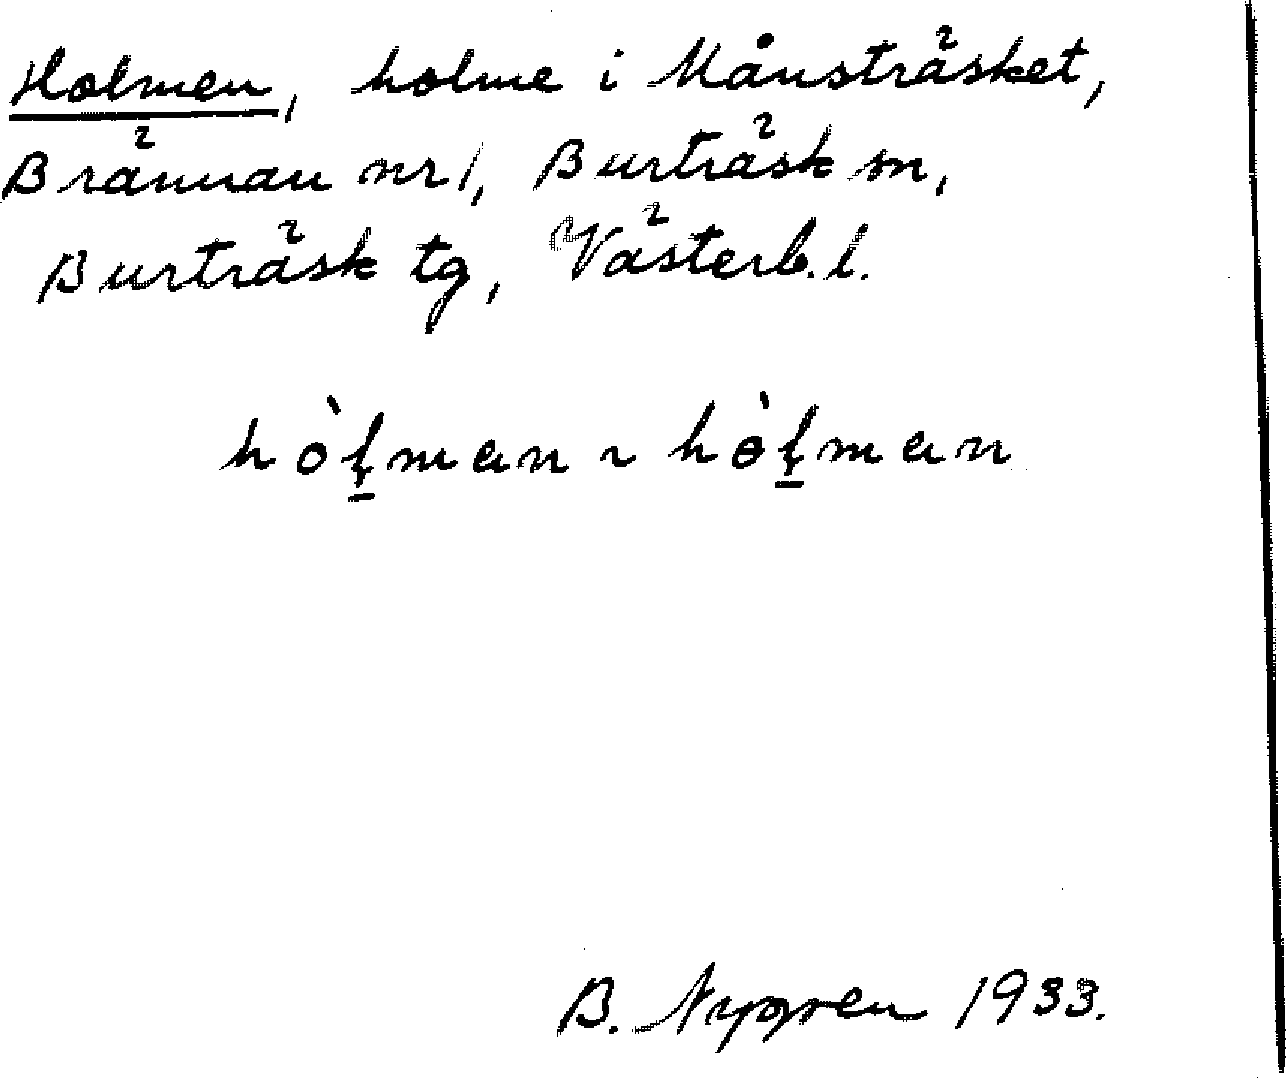 Holmen, holme i Månsträsket,
Brännan nr 1, Burträsk sn,
Burträsk tg, Västerb. l.
hòł̱man ~ hɵ̀ł̱man
B. Nygren 1933.